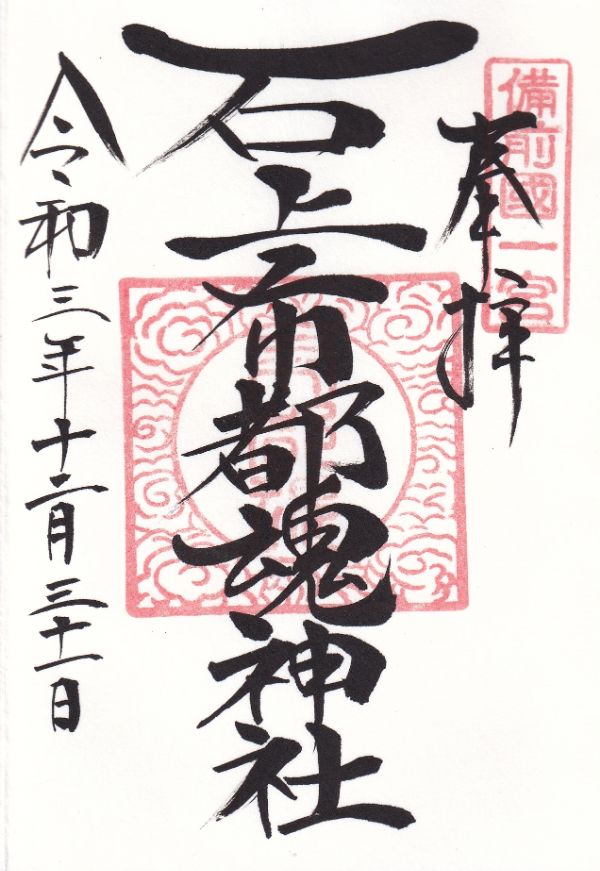 備前國一宮
奉拝
石上布都魂神社
令和三年十二月三十一日